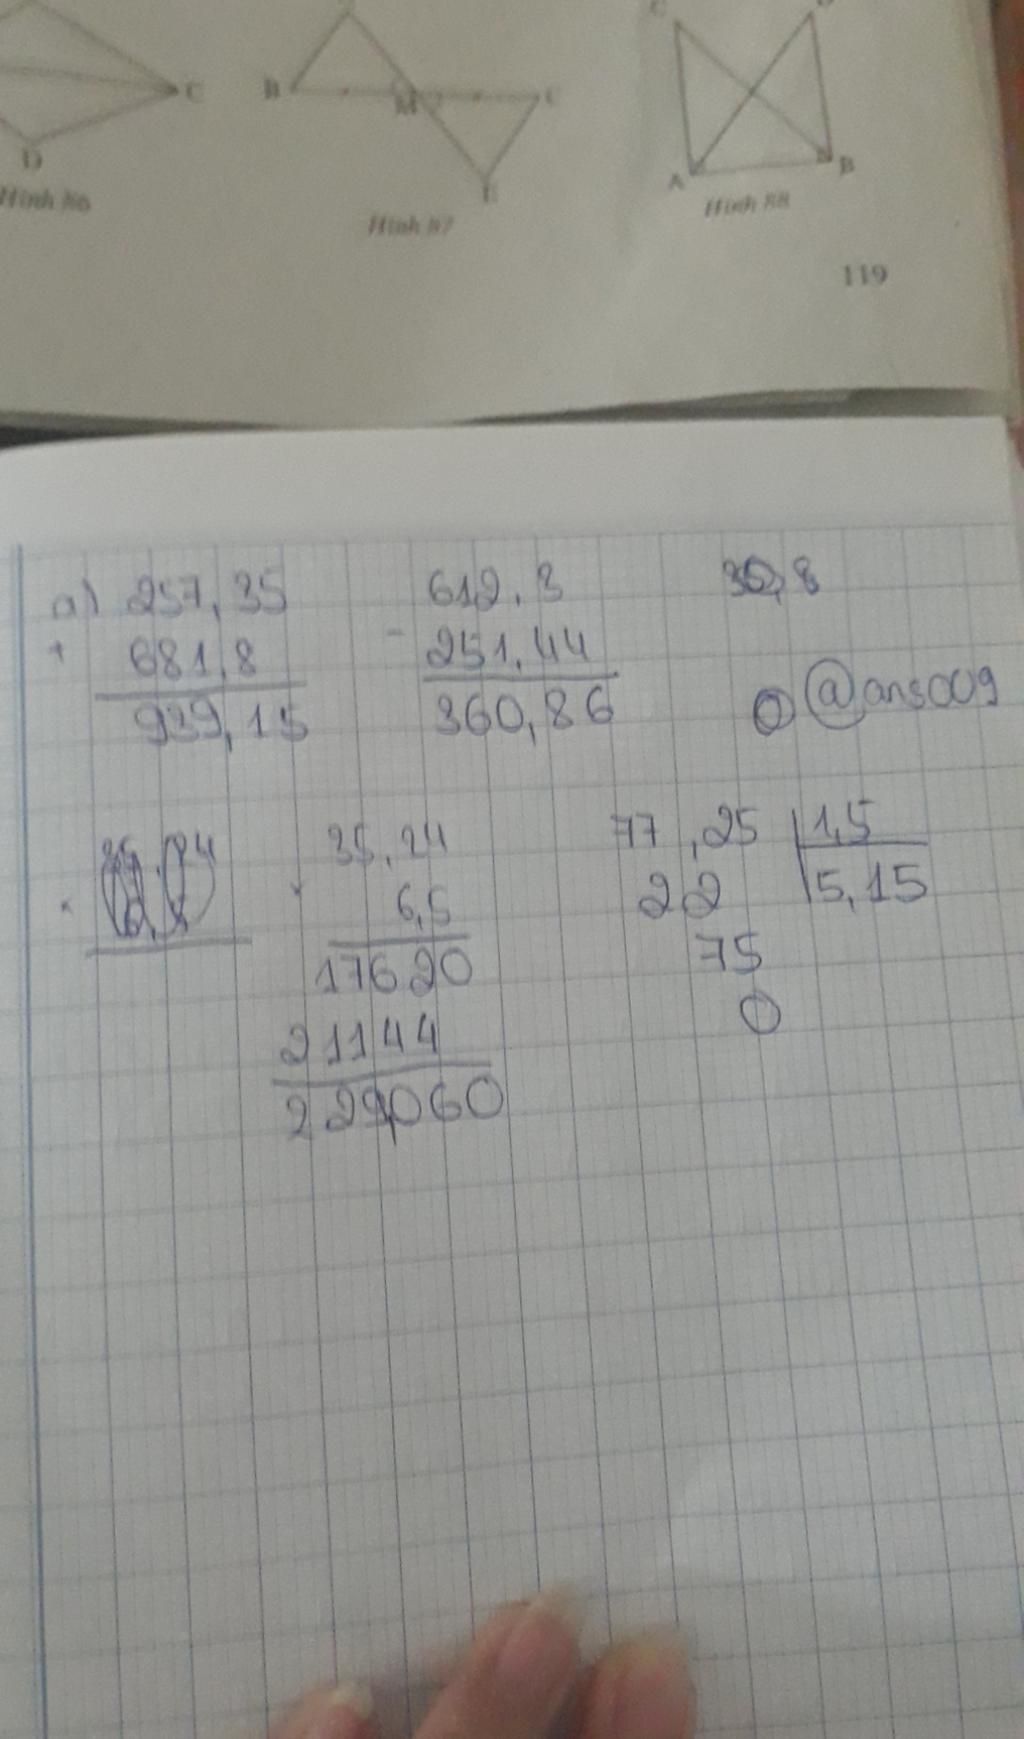 C
B
M
C
C
D
E
A
B
Hình 86
Hình 87
Hình 88
119
a) 257,35
+ 681,8
939,15
612,3
- 251,44
360,86
30,8
@ans009
35,24
× 6,5
17620
21144
229,060
77,25 1,5
22 5,15
75
0